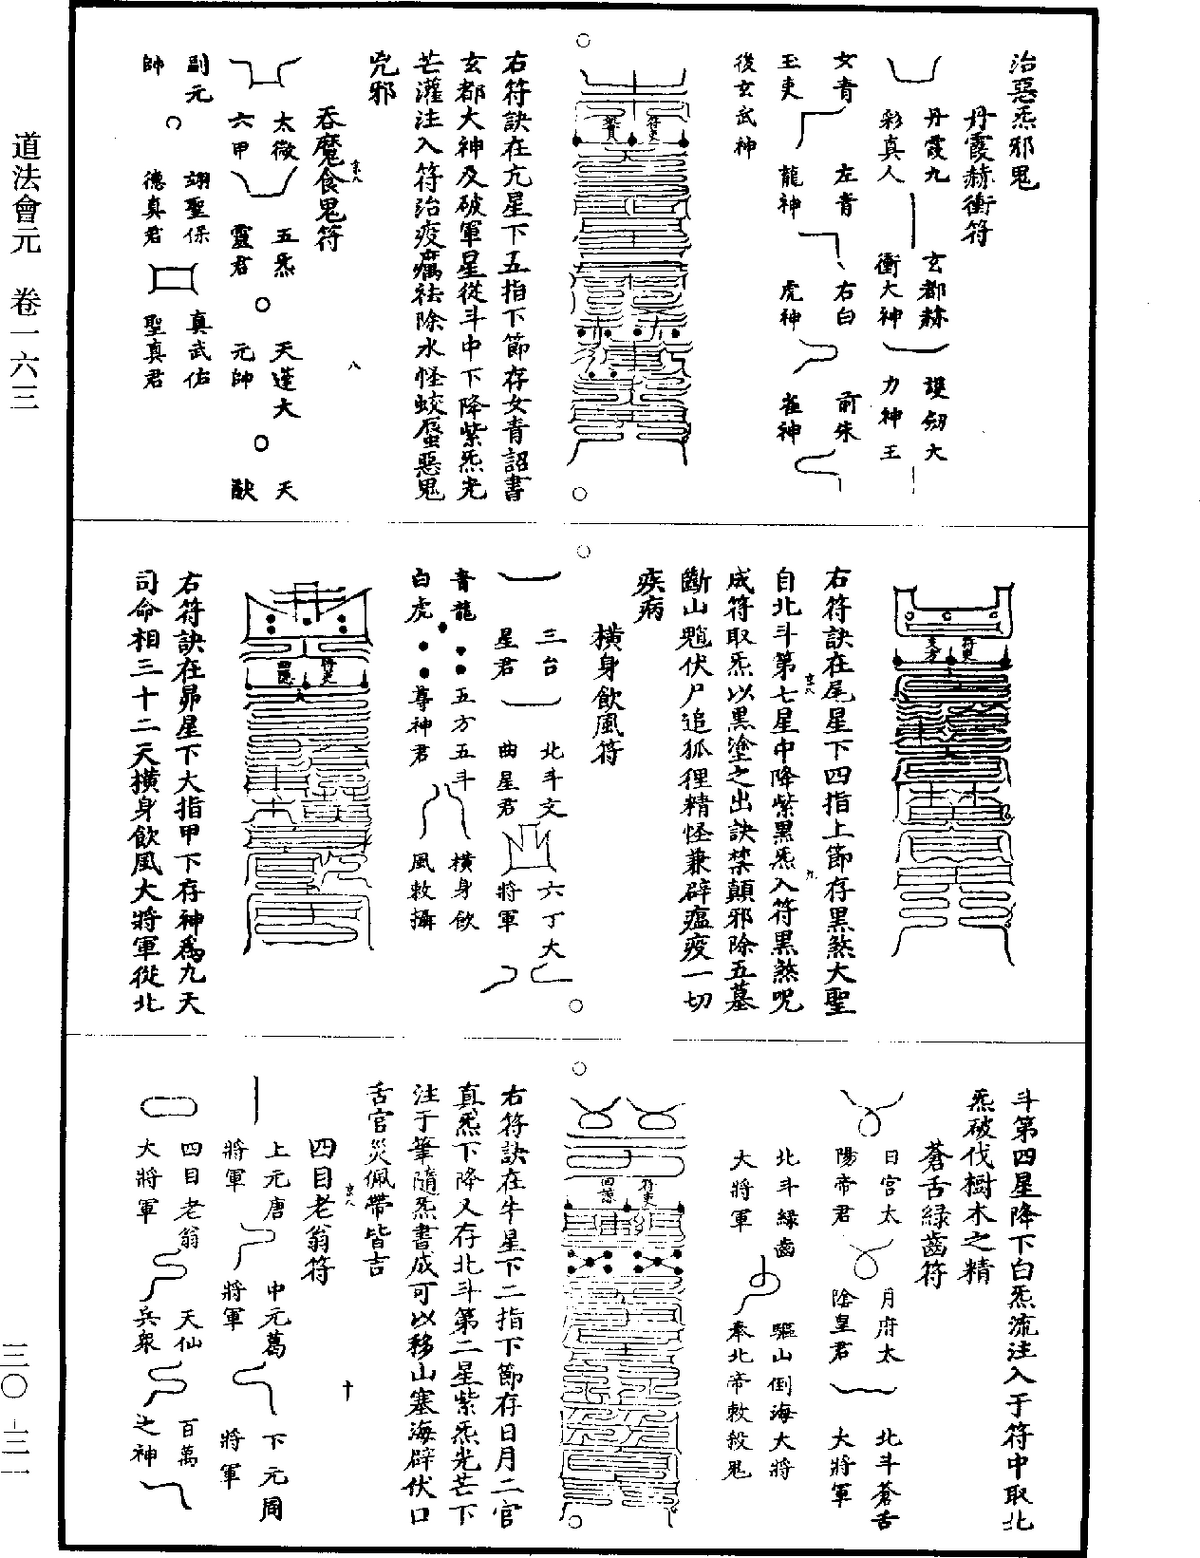 道法會元　卷一六三
三〇-三一
治惡炁邪鬼
丹霞赫衝符
丹霞九
彩真人
玄都赫
衝大神
護劒大
力神王
女青
玉吏
左青
龍神
右白
虎神
前朱
雀神
後玄武神
符吏
右符訣在亢星下五指下節存女青詔書
玄都大神及破軍星從斗中下降紫炁光
芒灌注入符治疫癘祛除水怪蛟蜃惡鬼
兇邪
吞魔食鬼符
京八
八
太微
六甲
五炁
靈君
天蓬大
元帥
天
猷
副元
帥
翊聖保
德真君
真武佑
聖真君
符吏
右符訣在尾星下四指上節存黑煞大聖
自北斗第七星中降紫黑炁入符黑煞咒
成符取炁以黑塗之出訣禁顛邪除五墓
斷山魈伏尸追狐狸精怪兼辟瘟疫一切
疾病
京八
九
橫身飲風符
三台
星君
北斗文
曲星君
六丁大
將軍
青龍
白虎
五方五斗
尊神君
橫身飲
風敕攝
符吏
右符訣在昴星下大指甲下存神為九天
司命相三十二天橫身飲風大將軍從北
斗第四星降下白炁流注入于符中取北
炁破伐樹木之精
蒼舌綠齒符
日宮太
陽帝君
月府太
陰皇君
北斗蒼舌
大將軍
北斗綠齒
大將軍
驅山倒海大將
奉北帝敕殺鬼
符吏
右符訣在牛星下二指下節存日月二官
真炁下降又存北斗第二星紫炁光芒下
注于筆隨炁書成可以移山塞海辟伏口
舌官災佩帶皆吉
四目老翁符
京八
十
上元唐
將軍
中元葛
將軍
下元周
將軍
四目老翁
大將軍
天仙
兵衆
百萬
之神